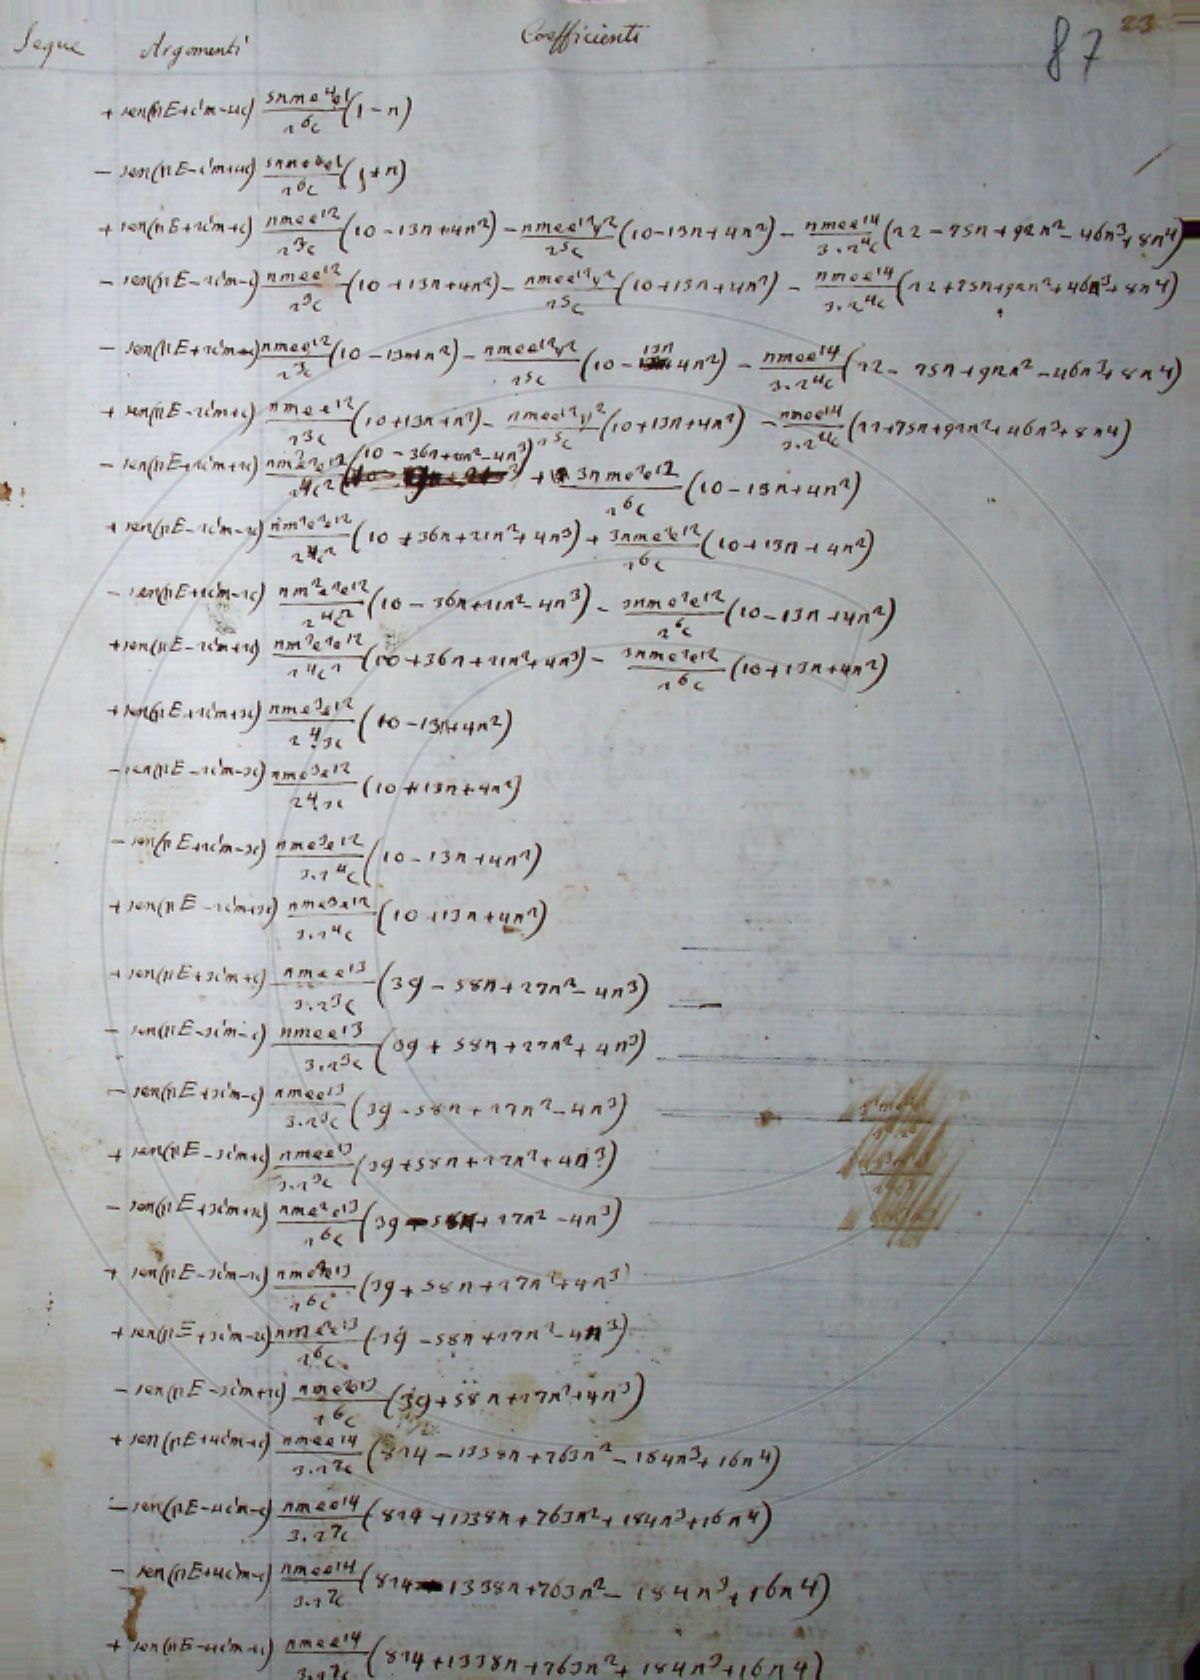 Segue Argomenti Coefficienti 87 23
+ sen(nE+c'm-4c) 5nme⁴e'/2⁶c (1-n)
- sen(nE-c'm+4c) 5nme⁴e'/2⁶c (1+n)
+ sen(nE+2c'm+c) nmee'²/2³c (10-13n+4n²) - nmee'²γ²/2⁵c (10-13n+4n²) - nmee'⁴/3.2⁴c (22-75n+92n²-46n³+8n⁴)
- sen(nE-2c'm-c) nmee'²/2³c (10+13n+4n²) - nmee'²γ²/2⁵c (10+13n+4n²) - nmee'⁴/3.2⁴c (22+75n+92n²+46n³+8n⁴)
- sen(nE+2c'm-c) nmee'²/2³c (10-13n+n²) - nmee'²γ²/2⁵c (10-13n 4n²) - nmee'⁴/3.2⁴c (22-75n+92n²-46n³+8n⁴)
+ sen(nE-2c'm+c) nmee'²/2³c (10+13n+n²) - nmee'²γ²/2⁵c (10+13n+4n²) - nmee'⁴/3.2⁴c (22+75n+92n²+46n³+8n⁴)
- sen(nE+2c'm+2c) nm²e²e'²/2⁴c² (10-36n+21n²-4n³) + 3nme²e'²/2⁶c (10-13n+4n²)
+ sen(nE-2c'm-2c) nm²e²e'²/2⁴c² (10+36n+21n²+4n³) + 3nme²e'²/2⁶c (10+13n+4n²)
- sen(nE+2c'm-2c) nm²e²e'²/2⁴c² (10-36n+21n²-4n³) - 3nme²e'²/2⁶c (10-13n+4n²)
+ sen(nE-2c'm+2c) nm²e²e'²/2⁴c² (10+36n+21n²+4n³) - 3nme²e'²/2⁶c (10+13n+4n²)
+ sen(nE+2c'm+3c) nme³e'²/2⁴.3c (10-13n+4n²)
- sen(nE-2c'm-3c) nme³e'²/2⁴3c (10+13n+4n²)
- sen(nE+2c'm-3c) nme³e'²/3.2⁴c (10-13n+4n²)
+ sen(nE-2c'm+3c) nme³e'²/3.2⁴c (10+13n+4n²)
+ sen(nE+3c'm+c) nmee'³/3.2³c (39-58n+27n²-4n³)
- sen(nE-3c'm-c) nmee'³/3.2³c (39+58n+27n²+4n³)
- sen(nE+3c'm-c) nmee'³/3.2³c (39-58n+27n²-4n³)
+ sen(nE-3c'm+c) nmee'³/3.2³c (39+58n+27n²+4n³)
- sen(nE+3c'm+2c) nme²e'³/2⁶c (39-58n+27n²-4n³)
+ sen(nE-3c'm-2c) nme²e'³/2⁶c (39+58n+27n²+4n³)
+ sen(nE+3c'm-2c) nme²e'³/2⁶c (39-58n+27n²-4n³)
- sen(nE-3c'm+2c) nme²e'³/2⁶c (39+58n+27n²+4n³)
+ sen(nE+4c'm+c) nmee'⁴/3.2⁷c (824-1338n+763n²-184n³+16n⁴)
- sen(nE-4c'm-c) nmee'⁴/3.2⁷c (824+1338n+763n²+184n³+16n⁴)
- sen(nE+4c'm-c) nmee'⁴/3.2⁷c (824-1338n+763n²-184n³+16n⁴)
+ sen(nE-4c'm+c) nmee'⁴/3.2⁷c (824+1338n+763n²+184n³+16n⁴)